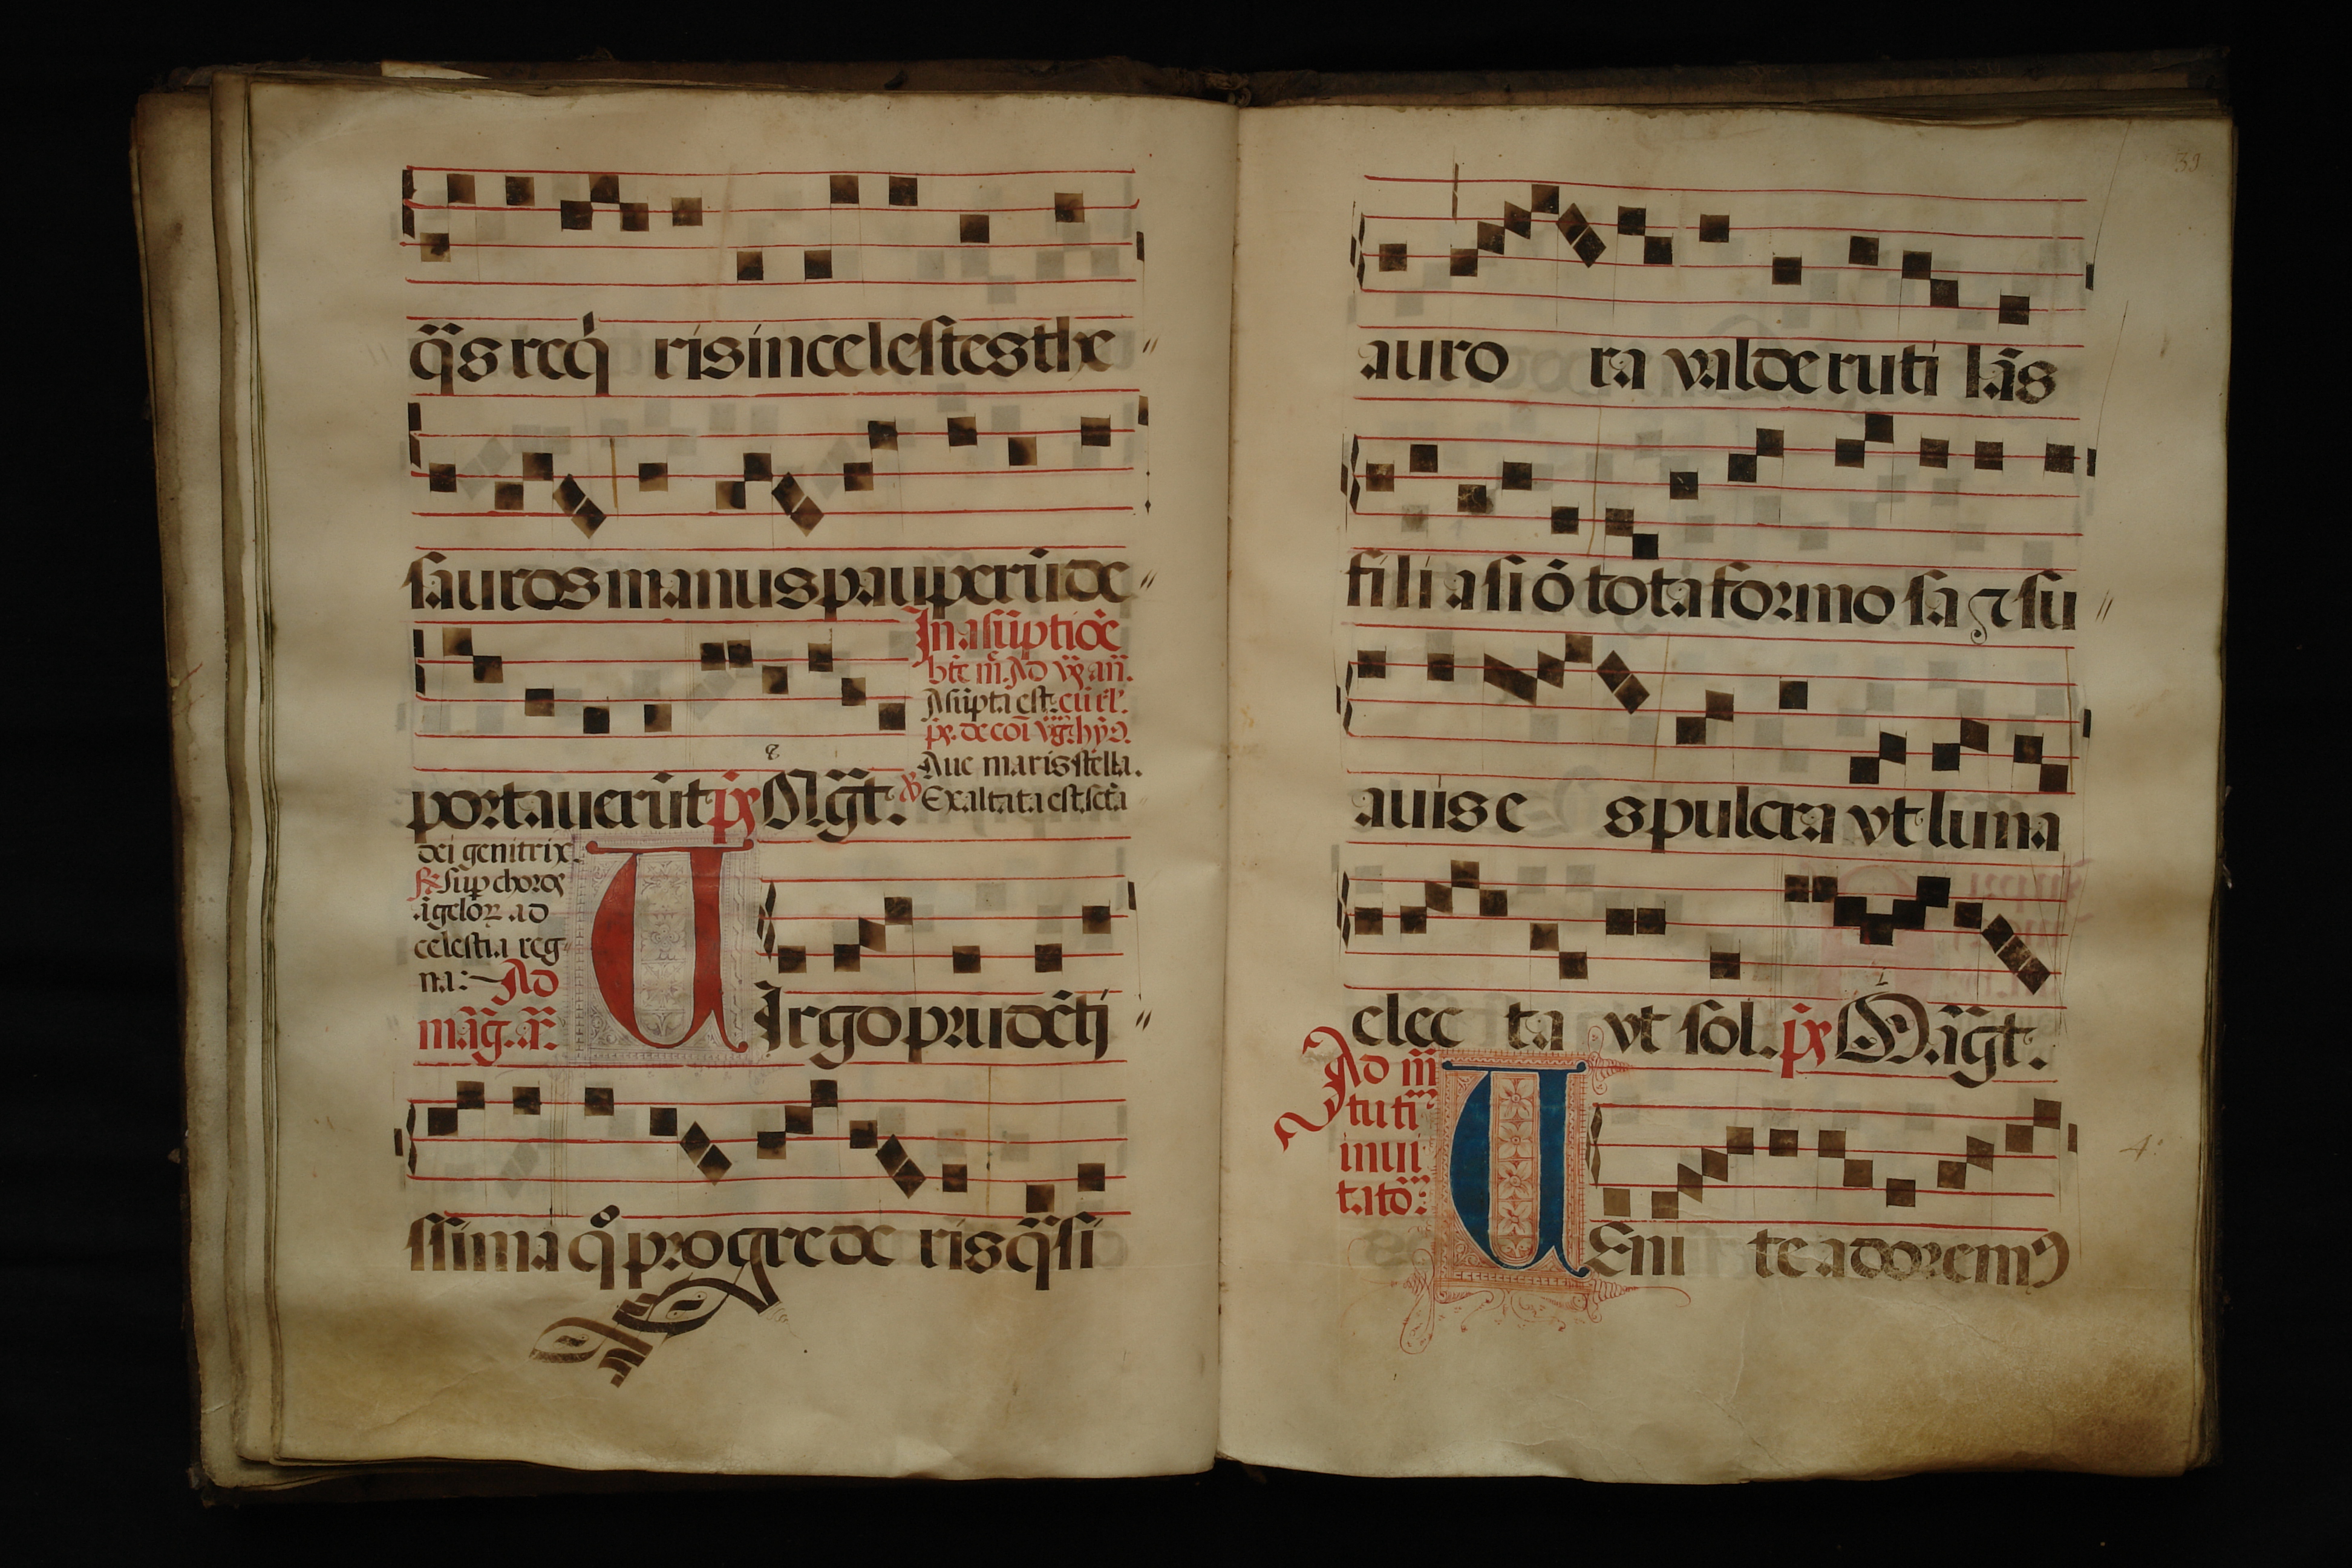 q̄s req́ ris in celestes the
sauros manus pauperū de
portauerūt p̄s Mḡt.
In asūptiōe
bt̄e m̄. Ad vs̄ an̄.
Asūpta est. cū rl'.
ps̄. de cōi vḡ. hỹ.
Aue maris stella.
℣ Exaltata est sctā
dei genitrix.
℟ Sup choros
āgeloꝝ ad
celestia reg
na: Ad
māg. a.
UIrgo prudēti
ssima q° progrede ris q̄si
39
auro ra valde ruti lās
filia siō tota formo sa ⁊ su
auis e s pulcra vt luna
elec ta vt sol. p̄s Māḡt.
Ad m̄
tuti
inui
tatō:
UEni te adoremꝰ